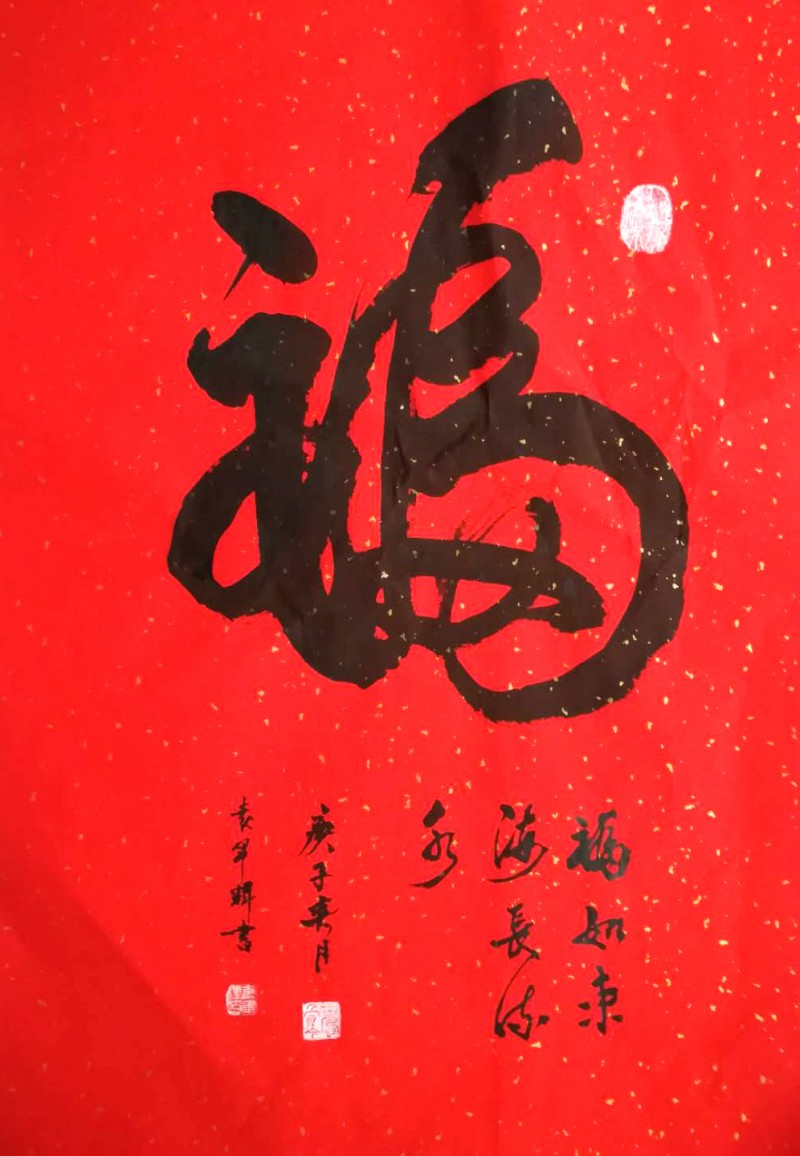 福
福如東
海長流
水
庚子春月
袁军辉書